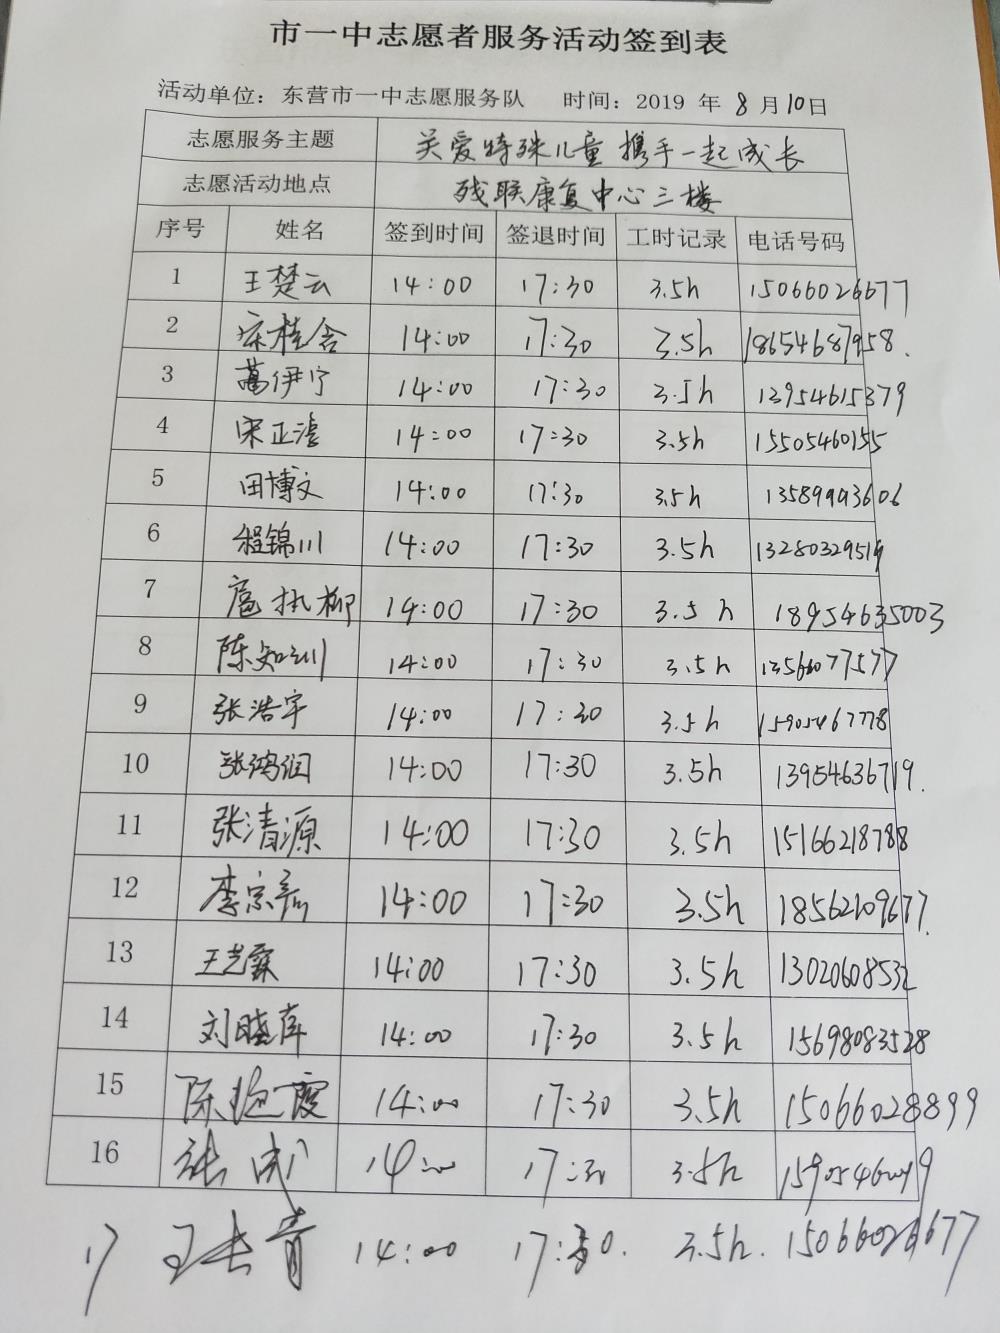 市一中志愿者服务活动签到表
活动单位：东营市一中志愿服务队 时间：2019 年 8 月 10 日
志愿服务主题 关爱特殊儿童 携手一起成长
志愿活动地点 残联康复中心三楼
序号 姓名 签到时间 签退时间 工时记录 电话号码
1 王楚云 14:00 17:30 3.5h 15066026677
2 14:00 17:30 3.5h 18654687958.
3 葛伊宁 14:00 17:30 3.5h 13954615379
4 14:00 17:30 3.5h 15505460155
5 田博文 14:00 17:30 3.5h 13589993606
6 程锦川 14:00 17:30 3.5h 13280329519
7 14:00 17:30 3.5h 18954635003
8 14:00 17:30 3.5h
9 张浩宇 14:00 17:30 3.5h 15905467778
10 张鸿润 14:00 17:30 3.5h 13954636719.
11 张清源 14:00 17:30 3.5h 15166218788
12 14:00 17:30 3.5h 18562109677.
13 王艺霖 14:00 17:30 3.5h 13020608532
14 14:00 17:30 3.5h 15698083528
15 14:00 17:30 3.5h 15066028899
16 14:00 17:30 3.5h
17 王长青 14:00 17:30. 3.5h. 15066026677